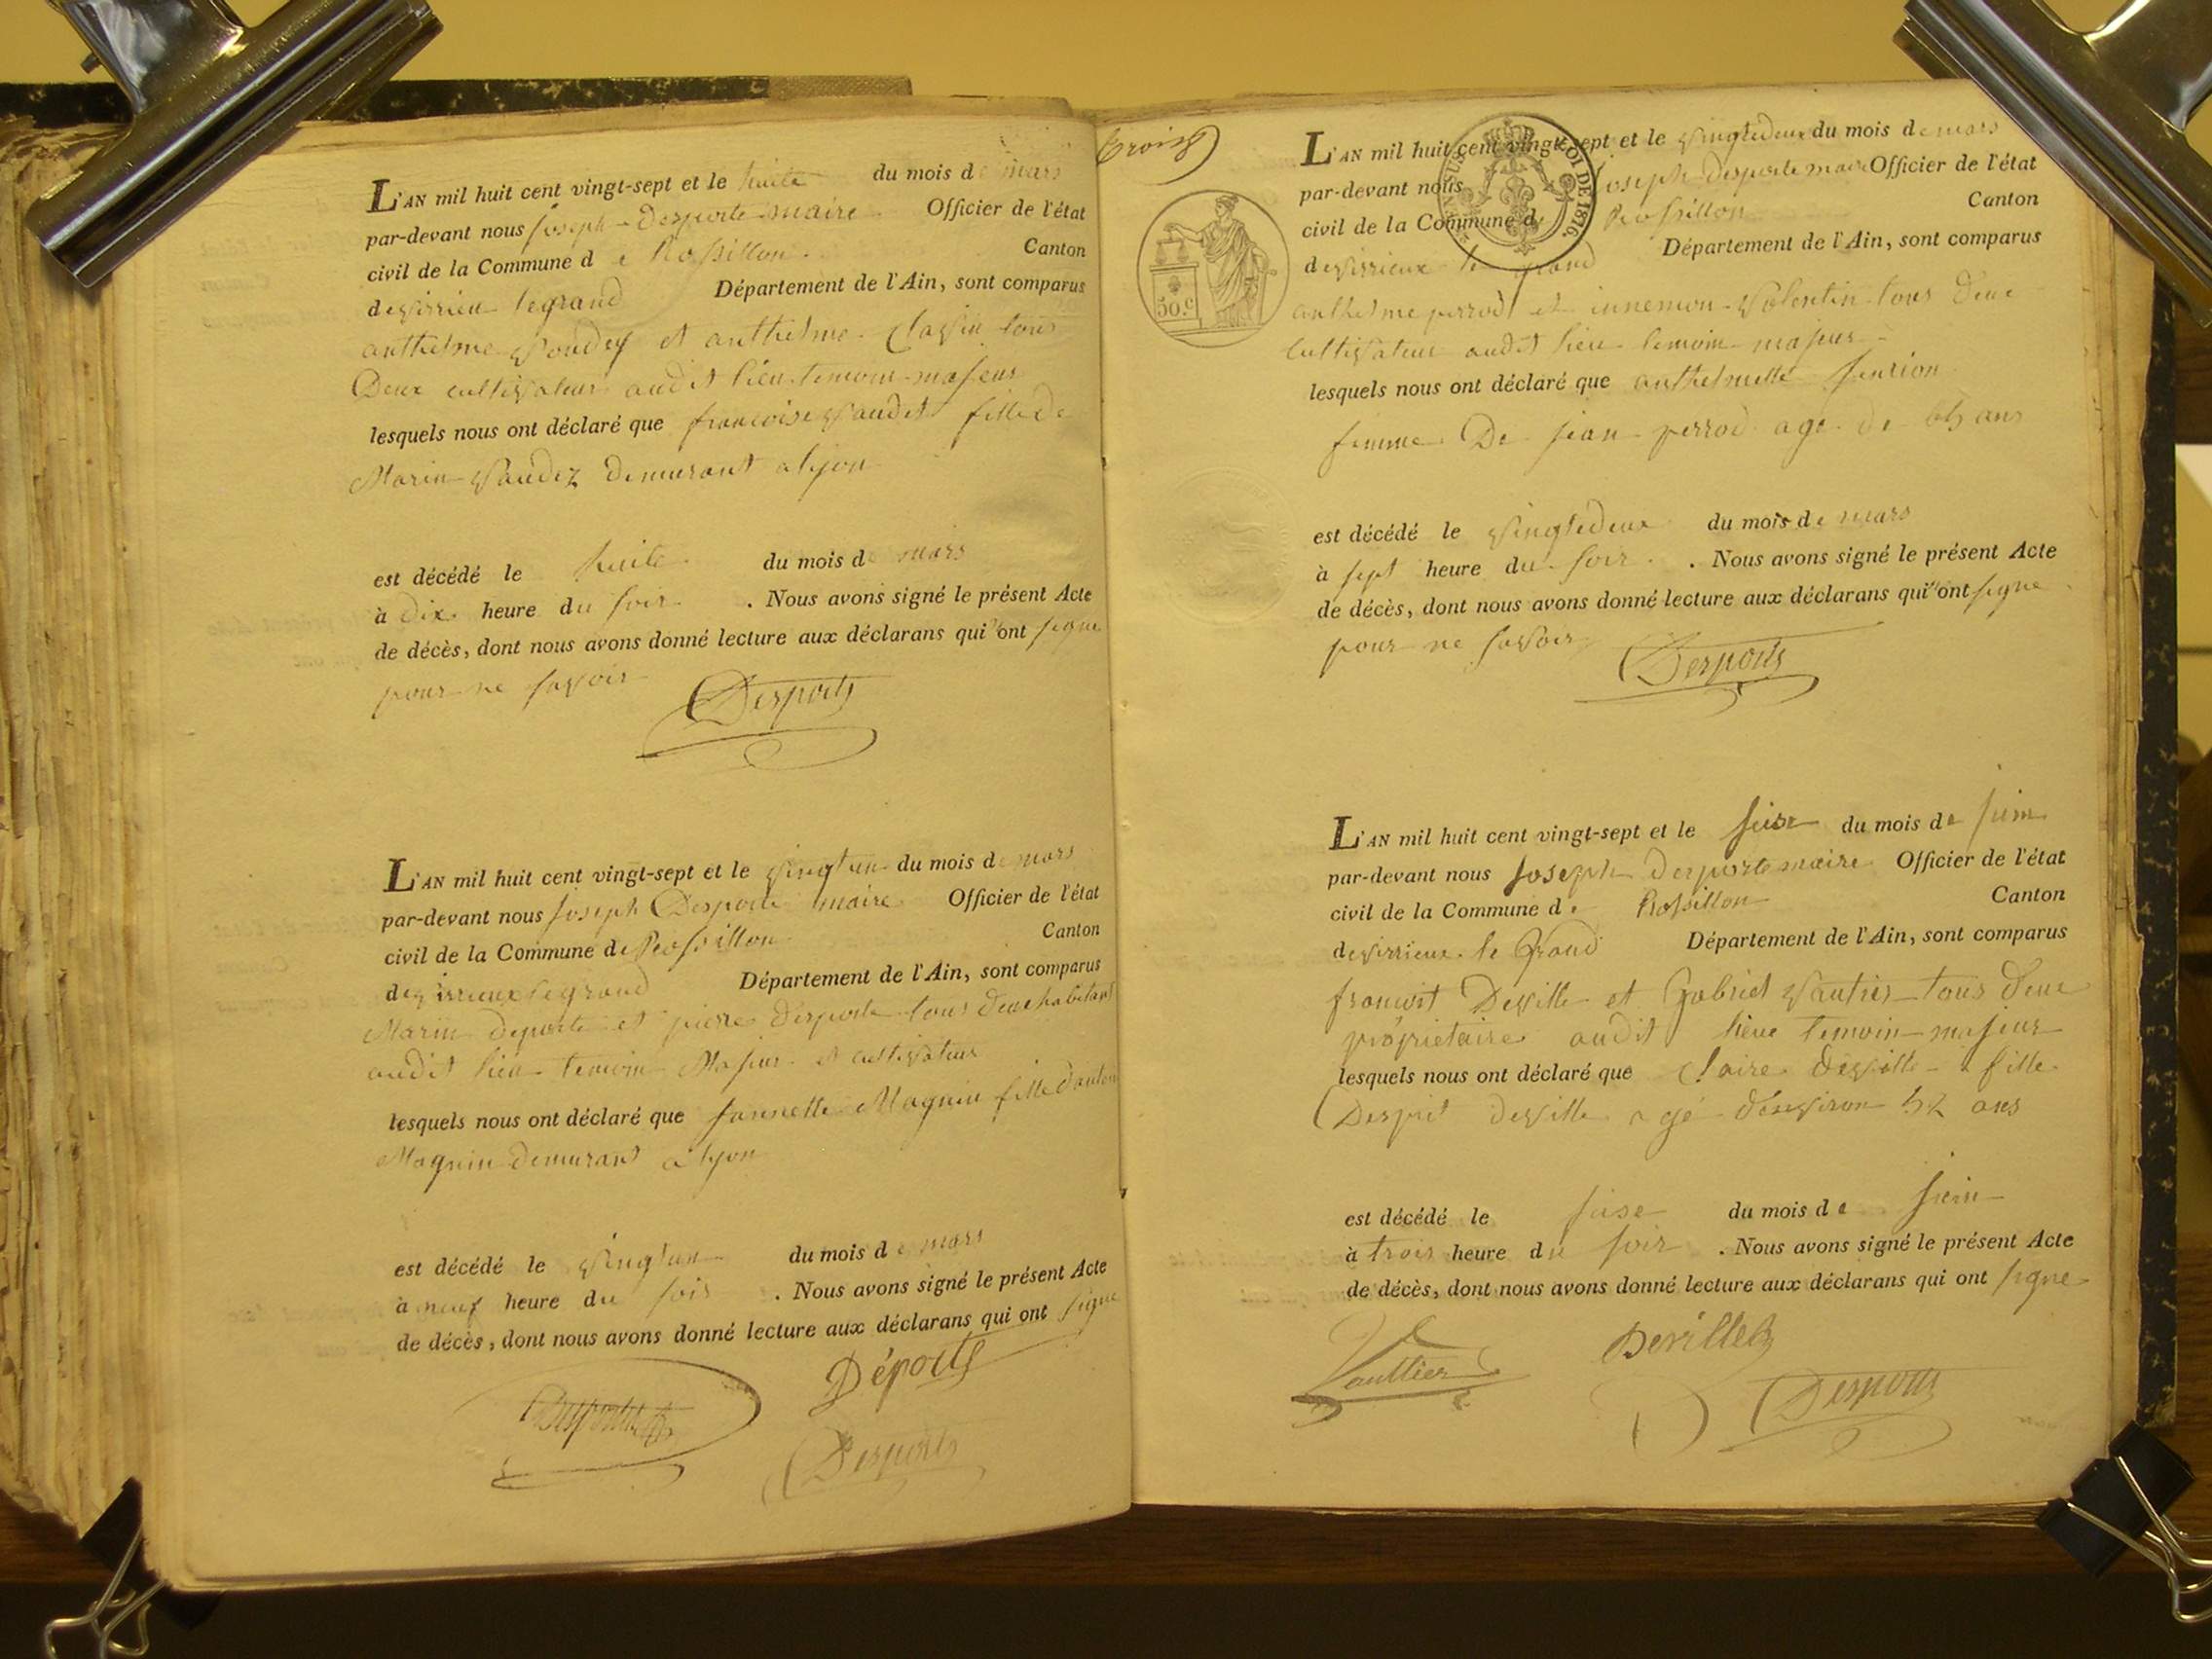 L'AN mil huit cent vingt-sept et le huite du mois de mars
par-devant nous joseph Desporte maire Officier de l'état
civil de la Commune de Rossillon Canton
devirrieu legrand Département de l'Ain, sont comparus
anthelme et anthelme tous
Deux cultivateur audit lieu temoin majeur
lesquels nous ont déclaré que francoise vaudet fille de
Marin Vaudez demurant a lyon
est décédé le huite du mois de mars
à dix heure du soir . Nous avons signé le présent Acte
de décès, dont nous avons donné lecture aux déclarans qui ont signe
pour ne savoir
Desporte
L'AN mil huit cent vingt-sept et le vingt un du mois de mars
par-devant nous joseph Desporte maire Officier de l'état
civil de la Commune de Rossillon Canton
devirrieux legrand Département de l'Ain, sont comparus
Marin deporte et pierre desporte tous deux habitant
audit lieu temoin Majeur et cultivateur
lesquels nous ont déclaré que jannette Magnin fille
Magnin demurant a lyon
est décédé le vingt un du mois de mars
à neuf heure du soir . Nous avons signé le présent Acte
de décès, dont nous avons donné lecture aux déclarans qui ont signe
Déporte
Desporte
trois
50.c
LOI DE 1816.
L'AN mil huit cent vingt-sept et le vingtedeux du mois de mars
par-devant nous joseph desporte maire Officier de l'état
civil de la Commune de Rossillon Canton
devirrieux le grand Département de l'Ain, sont comparus
anthelme perrod et innemon Valentin tous deux
cultivateur audit lieu temoin majeur
lesquels nous ont déclaré que anthelmette
femme De jean perrod age de ans
est décédé le vingtedeux du mois de mars
à sept heure du soir . Nous avons signé le présent Acte
de décès, dont nous avons donné lecture aux déclarans qui ont signe
pour ne savoir
Desporte
L'AN mil huit cent vingt-sept et le seise du mois de juin
par-devant nous joseph desporte maire Officier de l'état
civil de la Commune de Rossillon Canton
devirrieux le Grand Département de l'Ain, sont comparus
francois Deville et Gabriel Vautier tous deux
proprietaire audit lieux temoin majeur
lesquels nous ont déclaré que Claire deville fille
Desprit deville agé d'environ 52 ans
est décédé le seise du mois de juin
à trois heure du soir . Nous avons signé le présent Acte
de décès, dont nous avons donné lecture aux déclarans qui ont signe
Vauttier
Devillez
Desporte